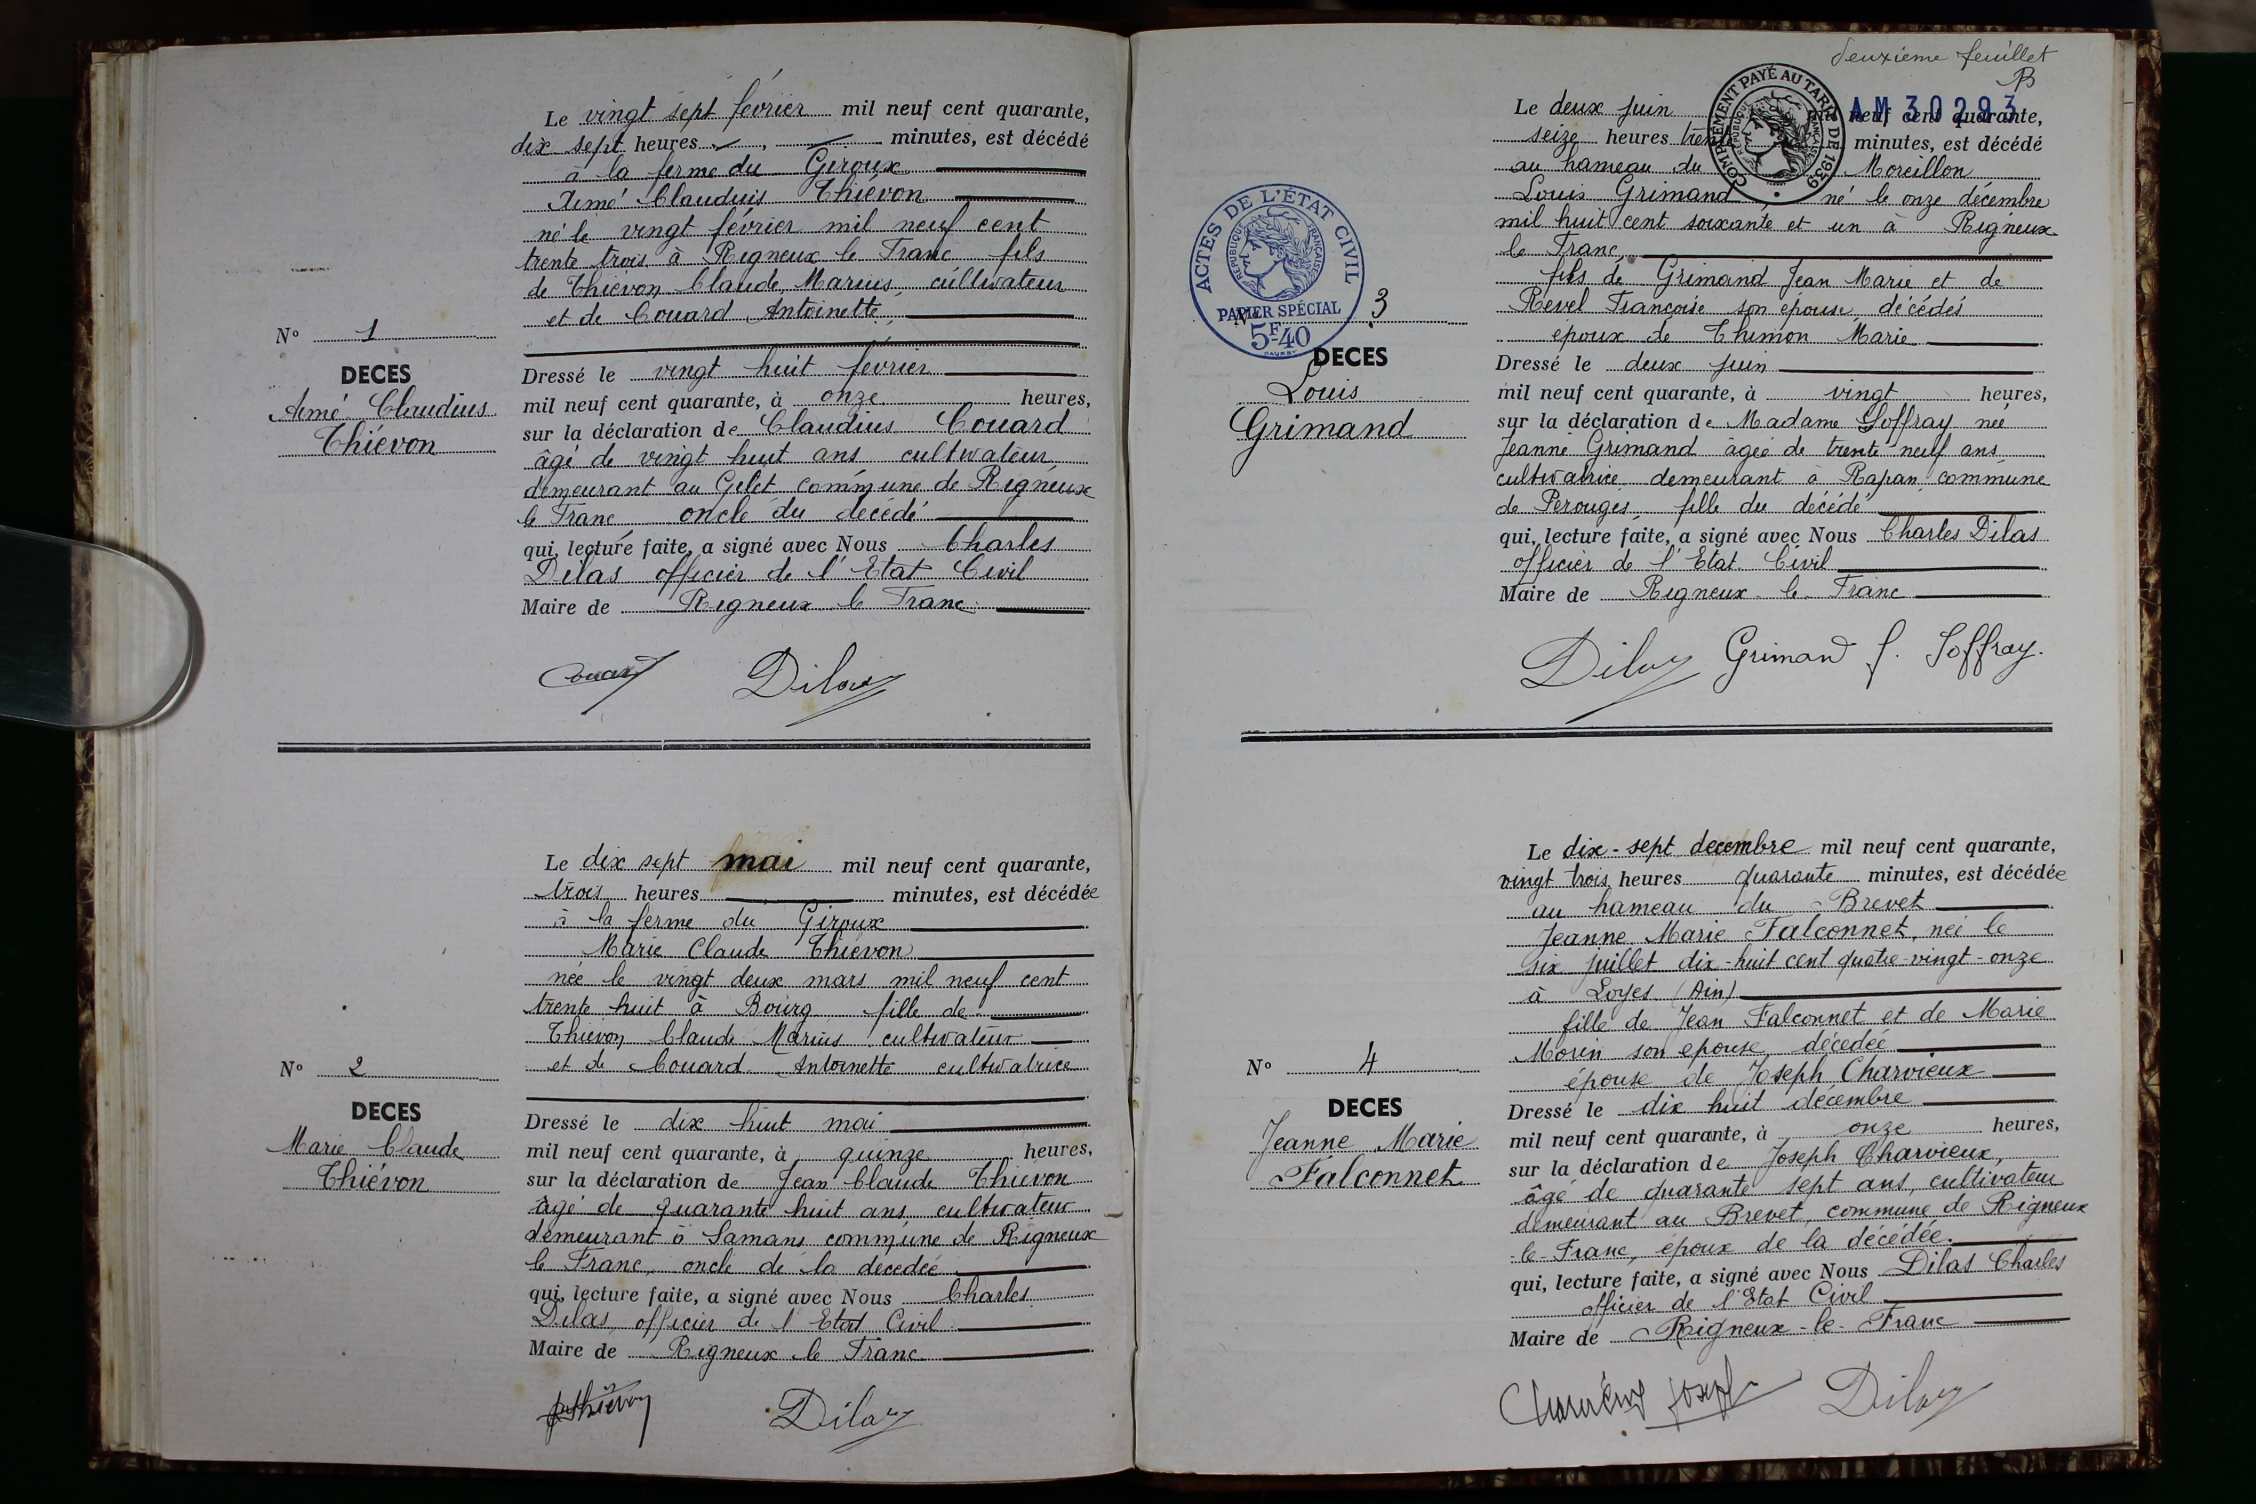 Le vingt sept février mil neuf cent quarante,
dix sept heures, minutes, est décédé
à la ferme du Giroux
Aimé Claudius Thiévon
né le vingt février mil neuf cent
trente trois à Rigneux le Franc fils
de Thiévon Claude, Marius, cultivateur
et de Couard Antoinette,
N° 1
DECES
Aimé Claudius
Thiévon
Dressé le vingt huit février
mil neuf cent quarante, à onze heures,
sur la déclaration de Claudius Couard
âgé de vingt huit ans cultivateur
demeurant au Gelet commune de Rigneux
le Franc oncle du décédé
qui, lecture faite, a signé avec Nous Charles
Dilas officier de l'Etat Civil
Maire de Rigneux le Franc
Couard Dilas
Le dix sept mai mil neuf cent quarante,
trois heures minutes, est décédée
à la ferme du Giroux
Marie Claude Thiévon
née le vingt deux mars mil neuf cent
trente huit à Bourg fille de
Thiévon Claude Marius cultivateur
et de Couard Antoinette cultivatrice
N° 2
DECES
Marie Claude
Thiévon
Dressé le dix huit mai
mil neuf cent quarante, à quinze heures,
sur la déclaration de Jean Claude Thiévon
âgé de quarante huit ans cultivateur
demeurant à Samans commune de Rigneux
le Franc, oncle de la décédée
qui, lecture faite, a signé avec Nous Charles
Dilas, officier de l'Etat Civil
Maire de Rigneux le Franc
Thiévon Dilas
deuxième feuillet
COMPLEMENT PAYÉ AU TARIF DE 1939
REPUBLIQUE FRANÇAISE
AM 30293
Le deux juin neuf cent quarante,
seize heures minutes, est décédé
au hameau du Morcillon
Louis Grimand né le onze décembre
mil huit cent soixante et un à Rigneux
le Franc,
fils de Grimand Jean Marie et de
Revel Françoise son épouse, décédés
époux de Thimon Marie
ACTES DE L'ÉTAT CIVIL
REPUBLIQUE FRANÇAISE
PAPIER SPÉCIAL
5F40
N° 3
DECES
Louis
Grimand
Dressé le deux juin
mil neuf cent quarante, à vingt heures,
sur la déclaration de Madame Soffray née
Jeanne Grimand âgée de trente neuf ans
cultivatrice demeurant à Rapan commune
de Perouges, fille du décédé
qui, lecture faite, a signé avec Nous Charles Dilas
officier de l'Etat Civil
Maire de Rigneux le Franc
Dilas Grimand f. Soffray.
Le dix-sept decembre mil neuf cent quarante,
vingt trois heures quarante minutes, est décédée
au hameau du Brevet
Jeanne Marie Falconnet, née le
six juillet dix-huit cent quatre-vingt-onze
à Loyes (Ain)
fille de Jean Falconnet et de Marie
Morin son épouse décédée
épouse de Joseph Charvieux
N° 4
DECES
Jeanne Marie
Falconnet
Dressé le dix huit décembre
mil neuf cent quarante, à onze heures,
sur la déclaration de Joseph Charvieux,
âgé de quarante sept ans, cultivateur
demeurant au Brevet, commune de Rigneux
-le-Franc, époux de la décédée.
qui, lecture faite, a signé avec Nous Dilas Charles
officier de l'Etat Civil
Maire de Rigneux-le-Franc
Charvieux Joseph Dilas